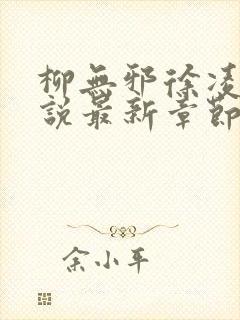 柳無邪徐凌
說最新章節
余小平